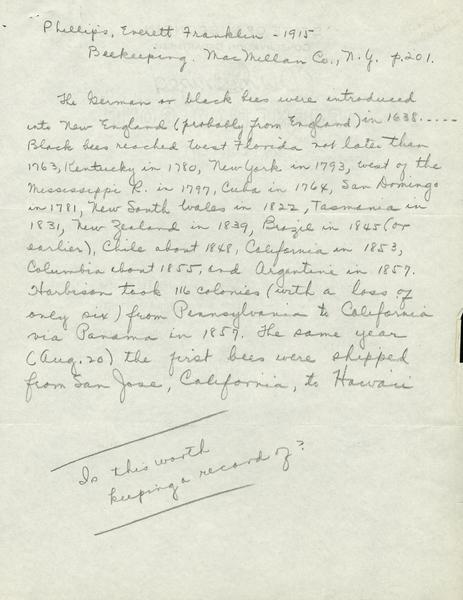 Phillips, Everett Franklin - 1915
Beekeeping. MacMillan Co., N.Y. p.201.
The German or black bees were introduced
into New England (probably from England) in 1638.....
Black bees reached West Florida not later than
1763, Kentucky in 1780, New York in 1793, west of the
Mississippi R. in 1797, Cuba in 1764, San Domingo
in 1781, New South Wales in 1822, Tasmania in
1831, New Zealand in 1839, Brazil in 1845 (or
earlier), Chile about 1848, California in 1853,
Columbia about 1855, and Argentine in 1857.
Harbison took 116 colonies (with a loss of
only six) from Pennsylvania to California
via Panama in 1857. The same year
(Aug. 20) the first bees were shipped
from San Jose, California, to Hawaii
Is this worth
keeping a record of?